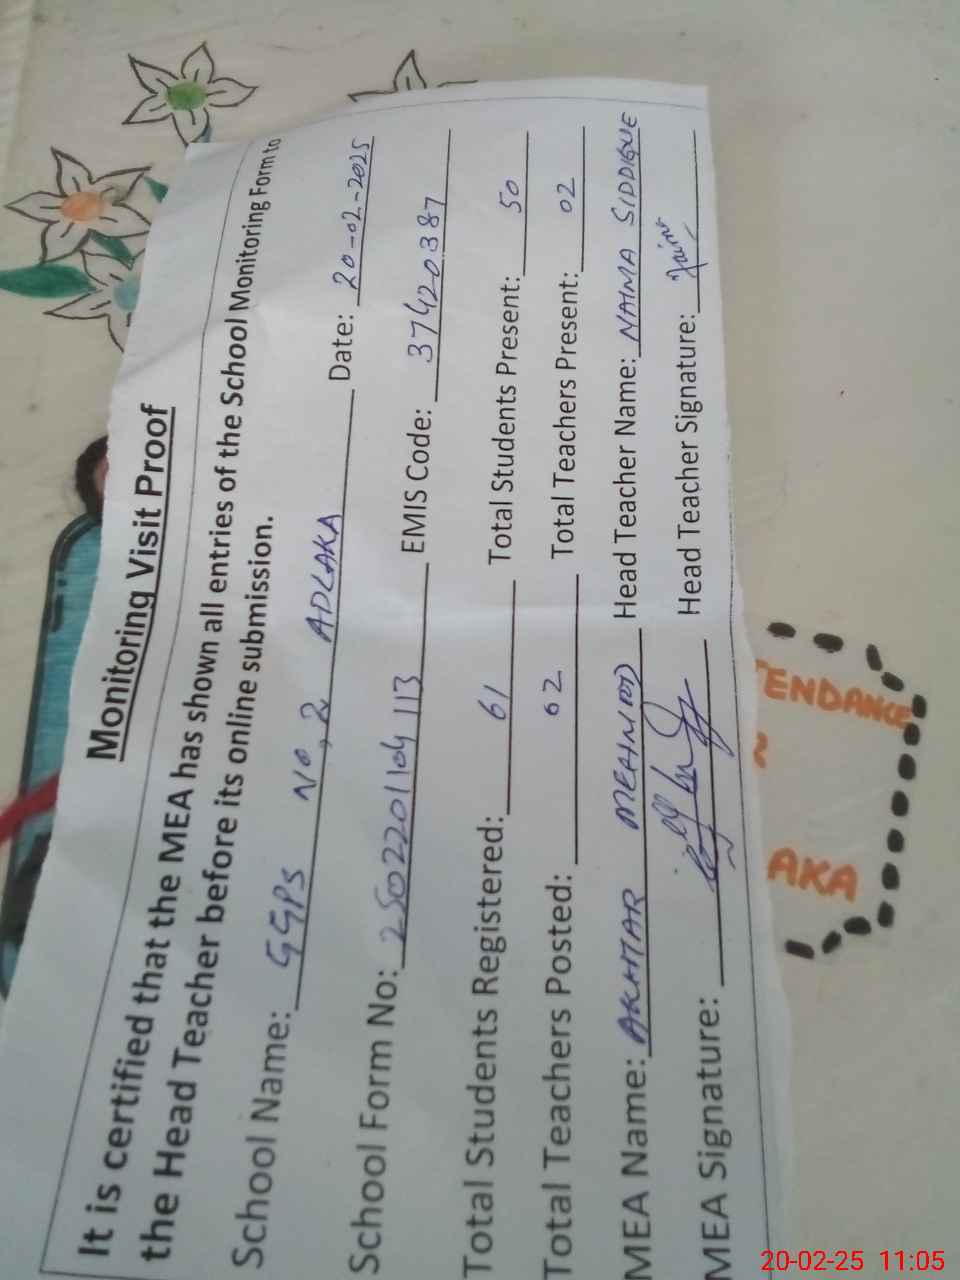 Monitoring Visit Proof
It is certified that the MEA has shown all entries of the School Monitoring Form to
the Head Teacher before its online submission.
School Name: GGPS No, 2 ADLAKA Date: 20-02-2025
School Form No: 2502201104113 EMIS Code: 37420387
Total Students Registered: 61 Total Students Present: 50
Total Teachers Posted: 02 Total Teachers Present: 02
MEA Name: AKHTAR MEHMOOD Head Teacher Name: NAIMA SIDDIQUE
MEA Signature: Head Teacher Signature:
TENDANCE
2
AKA
20-02-25 11:05